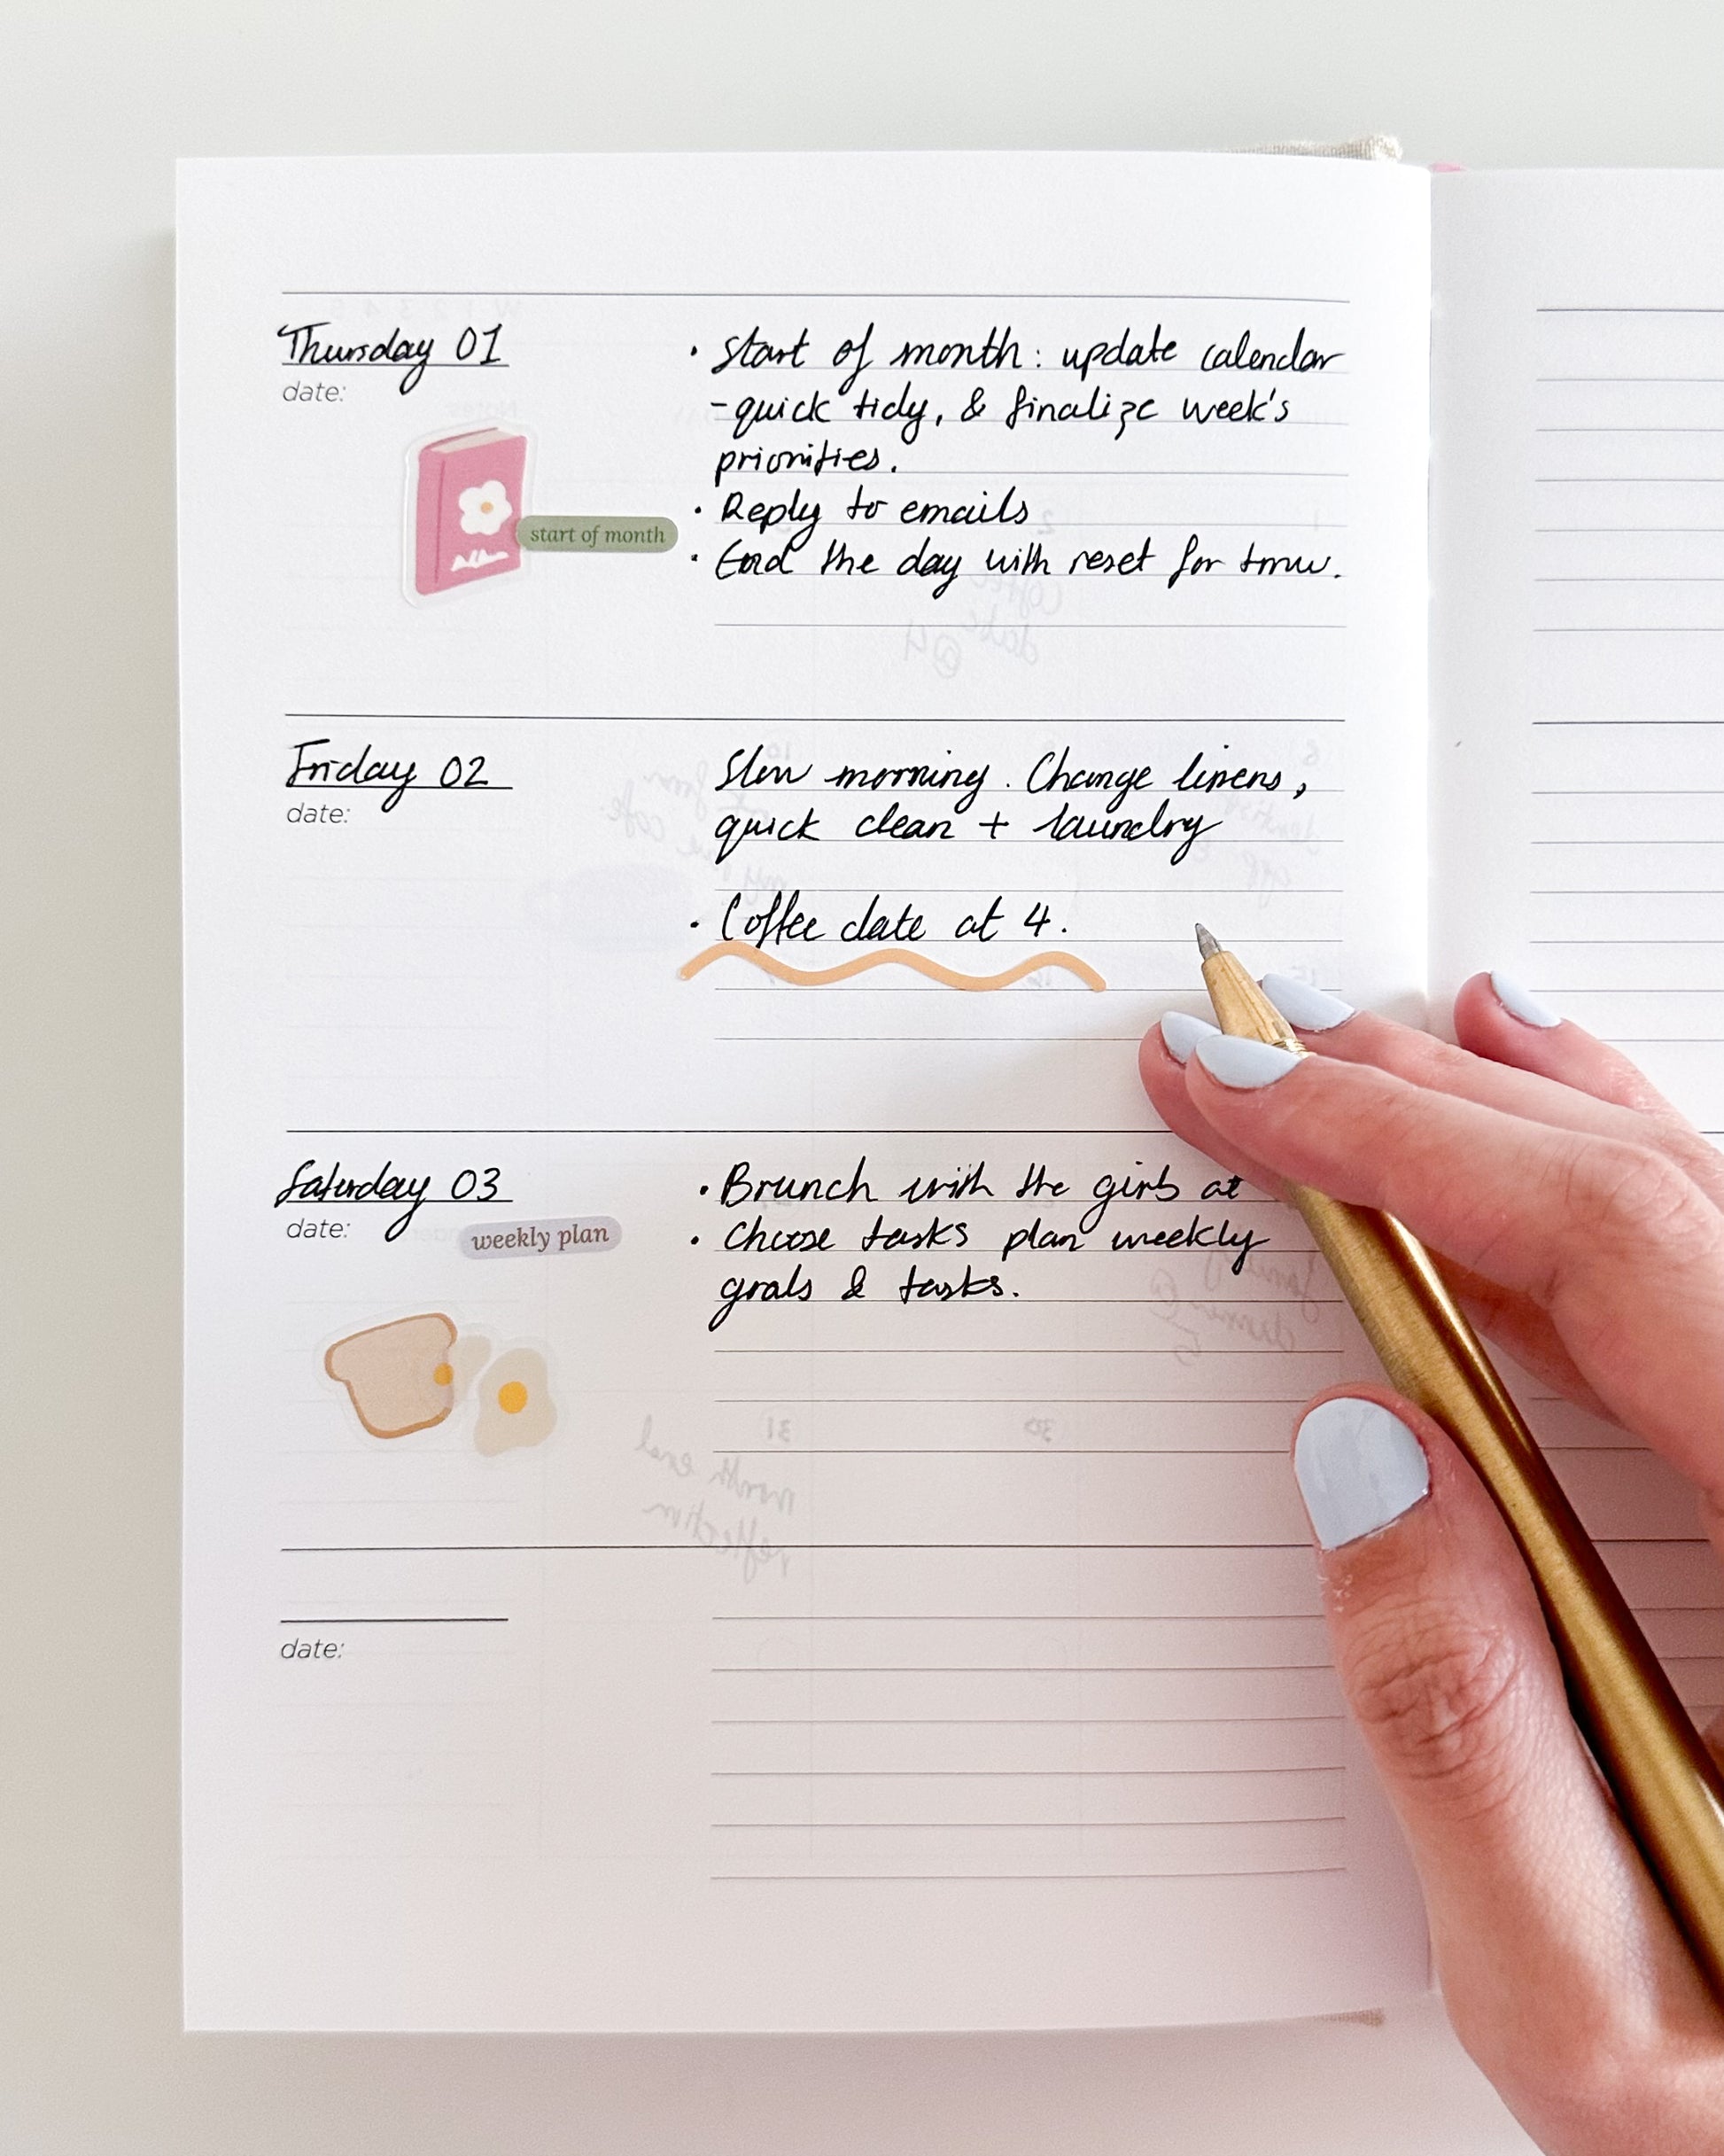 Thursday 01
date:
start of month
• Start of month: update calendar
- quick tidy, & finalize week's
priorities.
• Reply to emails
• End the day with reset for tmw.
Friday 02
date:
Slow morning. Change linens,
quick clean + laundry
• Coffee date at 4.
Saturday 03
date:
weekly plan
• Brunch with the girls at
• Choose tasks plan weekly
goals & tasks.
date: